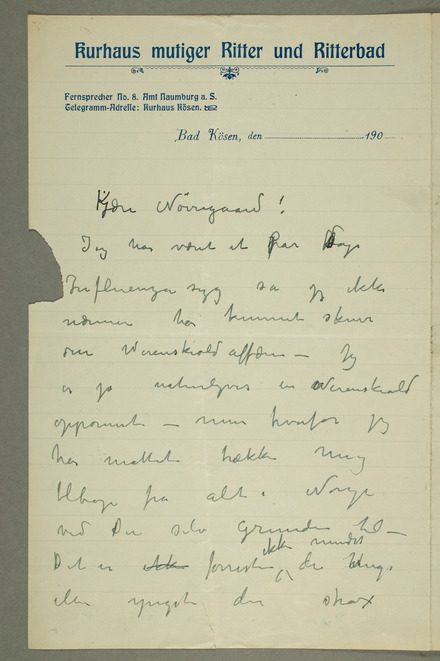 Kurhaus mutiger Ritter und Ritterbad
Fernsprecher No. 8. Amt Naumburg a. S.
Telegramm-Adresse: Kurhaus Kösen.
Bad Kösen, den 190
Kjære Nörregaard!
Jeg har været et Par Dage
Influenzasyg så jeg ikke
nærmere har kunnet skrive
om Werenskioldaffæren – Jeg
er jo naturligvis en Werenskiold
opponent – men hvorfor jeg
har måttet trække mig
tilbage fra alt i Norge
ved Du selv Grunden til –
ikke mindst
Det er den Unge
eller yngste der strax